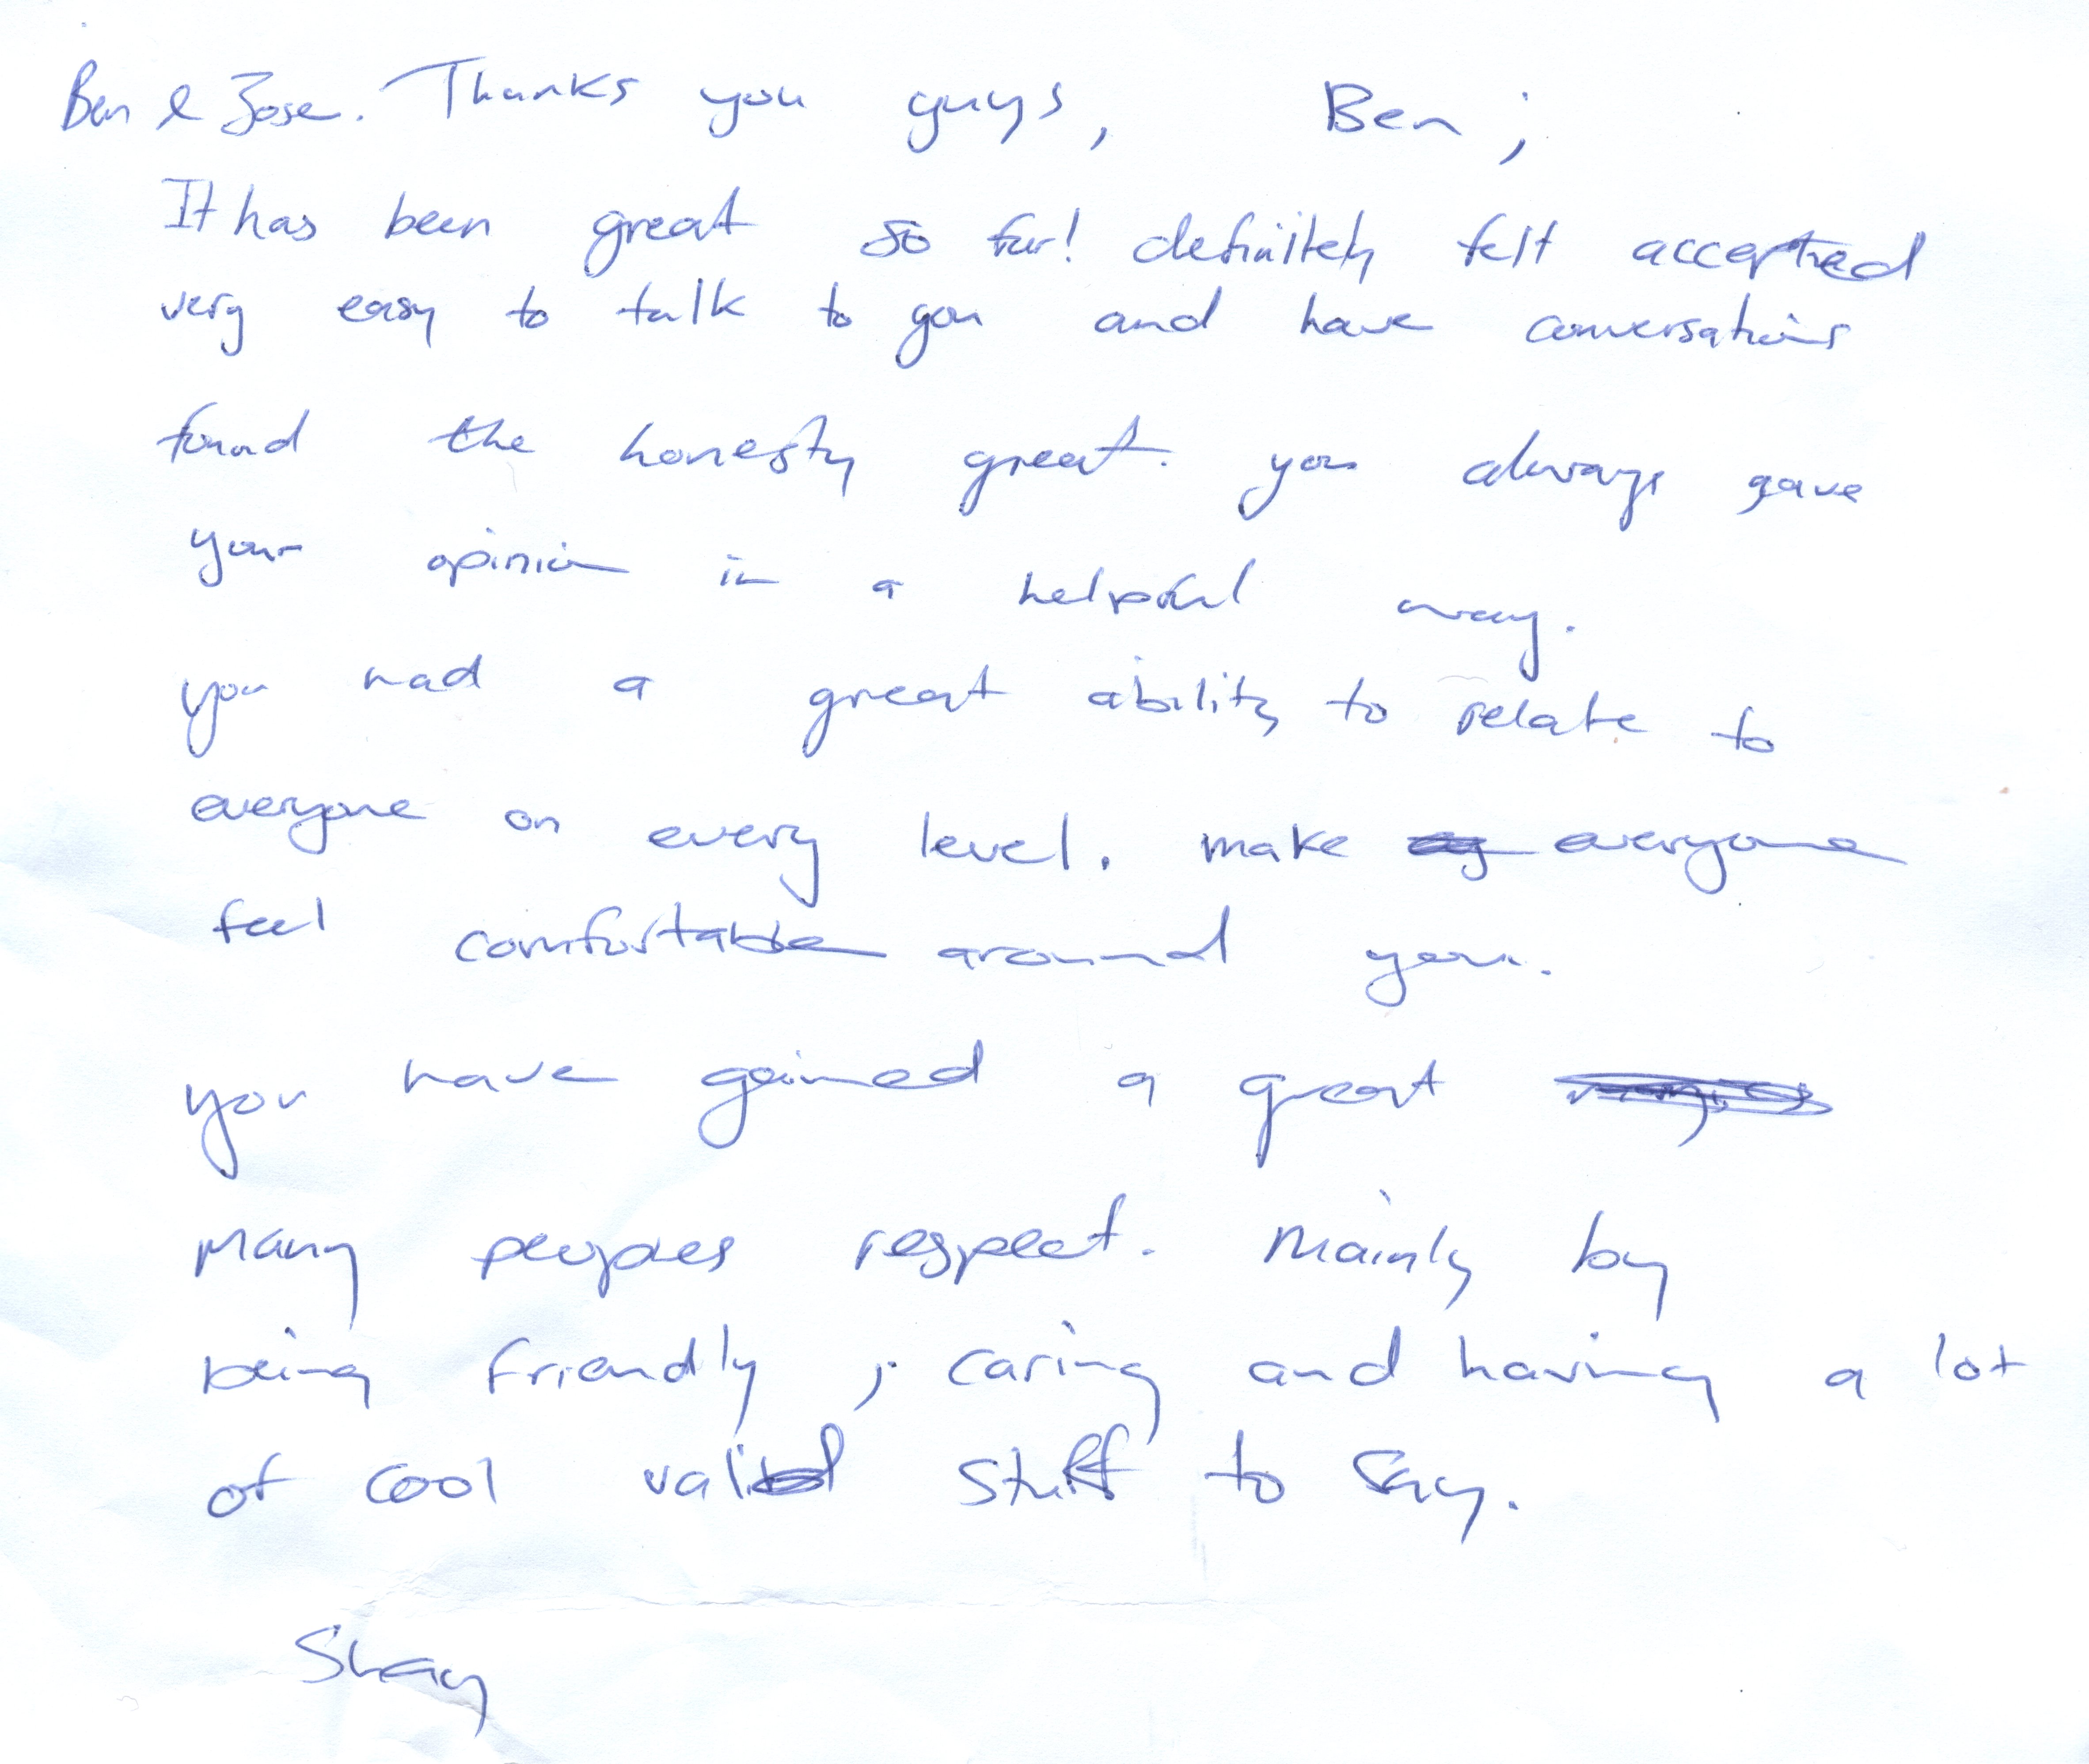 Ben & Jose. Thanks you guys, Ben;
It has been great so far! definitely felt accepted
very easy to talk to you and have conversations
found the honesty great. you always gave
your opinion in a helpful way.
you had a great ability to relate to
everyone on every level. make everyone
feel comfortable around you.
you have gained a great
many peoples respect. Mainly by
being friendly, caring and having a lot
of cool valid stuff to say.
Shay